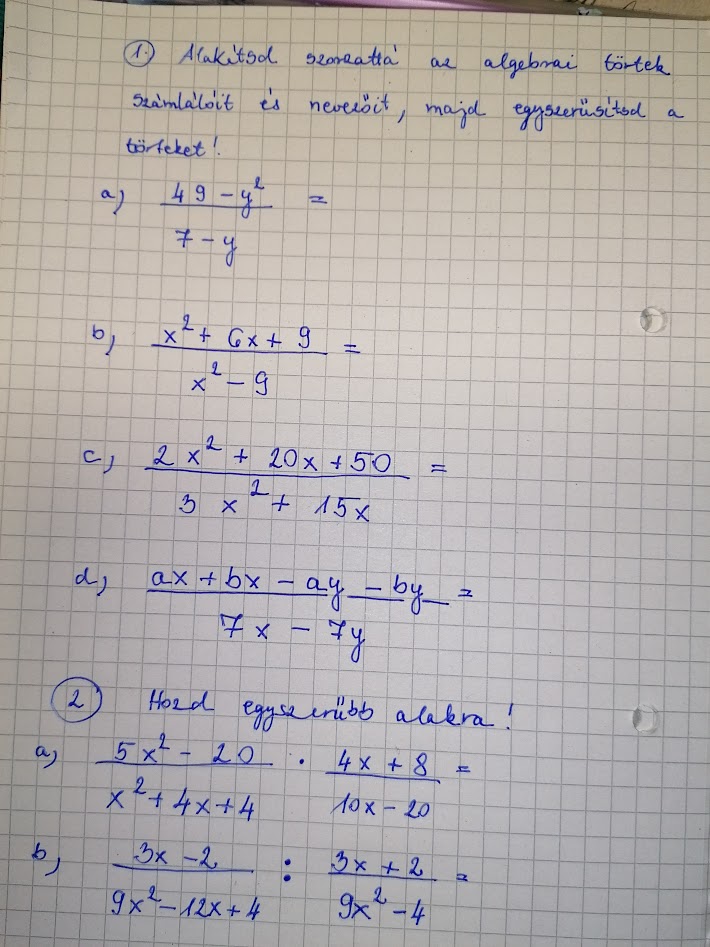 1. Alakítsd szorzattá az algebrai törtek
számlálóit és nevezőit, majd egyszerűsítsd a
törteket!
a) (49 - y²)/(7 - y) =
b) (x² + 6x + 9)/(x² - 9) =
c) (2x² + 20x + 50)/(3x² + 15x) =
d) (ax + bx - ay - by)/(7x - 7y) =
2 Hozd egyszerűbb alakra!
a) (5x² - 20)/(x² + 4x + 4) · (4x + 8)/(10x - 20) =
b) (3x - 2)/(9x² - 12x + 4) : (3x + 2)/(9x² - 4) =